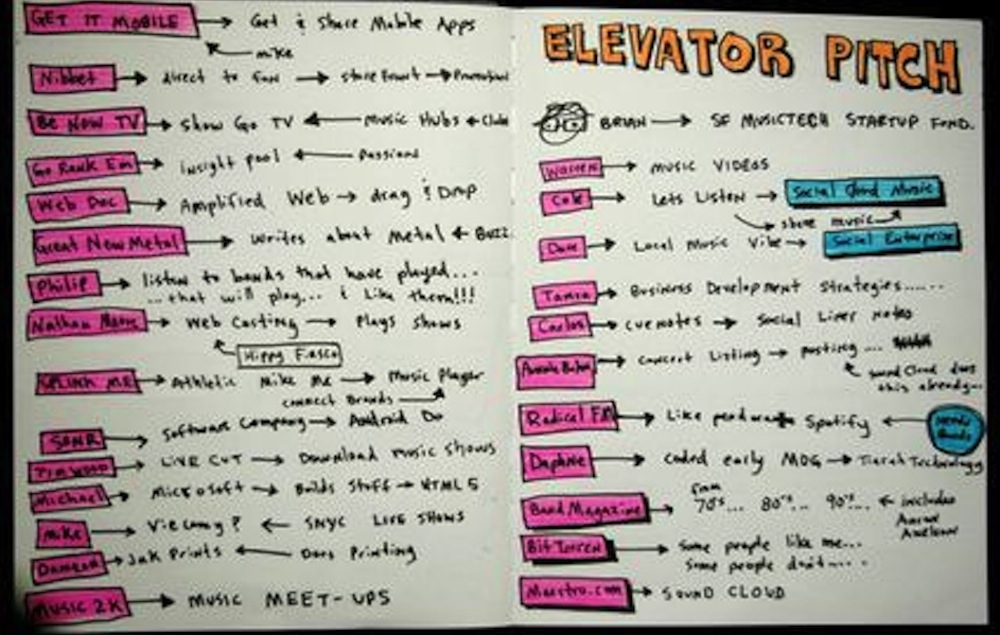 GET IT MOBILE → Get & Share Mobile Apps
mike
Nibbet → direct to fan → storefront → Promotion
Be Now TV → Show Go TV ← Music Hubs ← Club
Go Rank Em → insight pool ← Passions
Web Doc → Amplified Web → drag & Drop
Great New Metal → Writes about Metal ← Buzz
Philip → listen to bands that have played...
...that will play... & Like them!!!
Nathan → Web Casting → Plays Shows
Hippy Fiasco
SPLINK ME → Athletic Mike Me → Music Player
connect Brands
SONR → Software Company → Android Do
Tim Wood → LIVE CUT → Download music shows
Michael → Microsoft → Builds Stuff → HTML 5
Mike → ? ← SNYC LIVE SHOWS
→ Jak Prints ← Does Printing
MUSIC 2K → MUSIC MEET-UPS
ELEVATOR PITCH
BRIAN → SF MUSICTECH STARTUP FUND.
Warren → MUSIC VIDEOS
Cole → Lets Listen → Social Good Music
share music
Dave → Local Music Vibe → Social Enterprise
Tamra → Business Development Strategies......
Carlos → cuenotes → Social Liner Notes
→ Concert Listing → posting ...
Sound Cloud does
this already...
Radical FM → Like Spotify ←
Daphne → Coded early MOG → Technology
Band Magazine → from
70's... 80's... 90's... ← includes
Bit Torren → Some people like me...
Some people don't....
Maestro.com → SOUND CLOUD